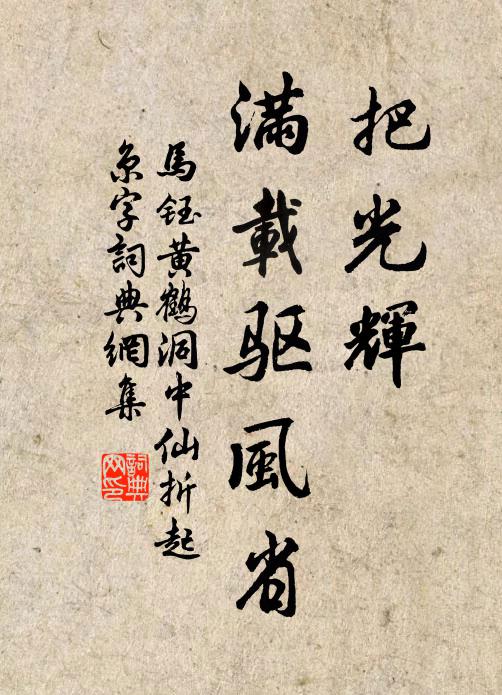 把光輝
滿載驱風省
馬鈺黃鶴洞中仙折起
京字詞典網集
詞典
网印